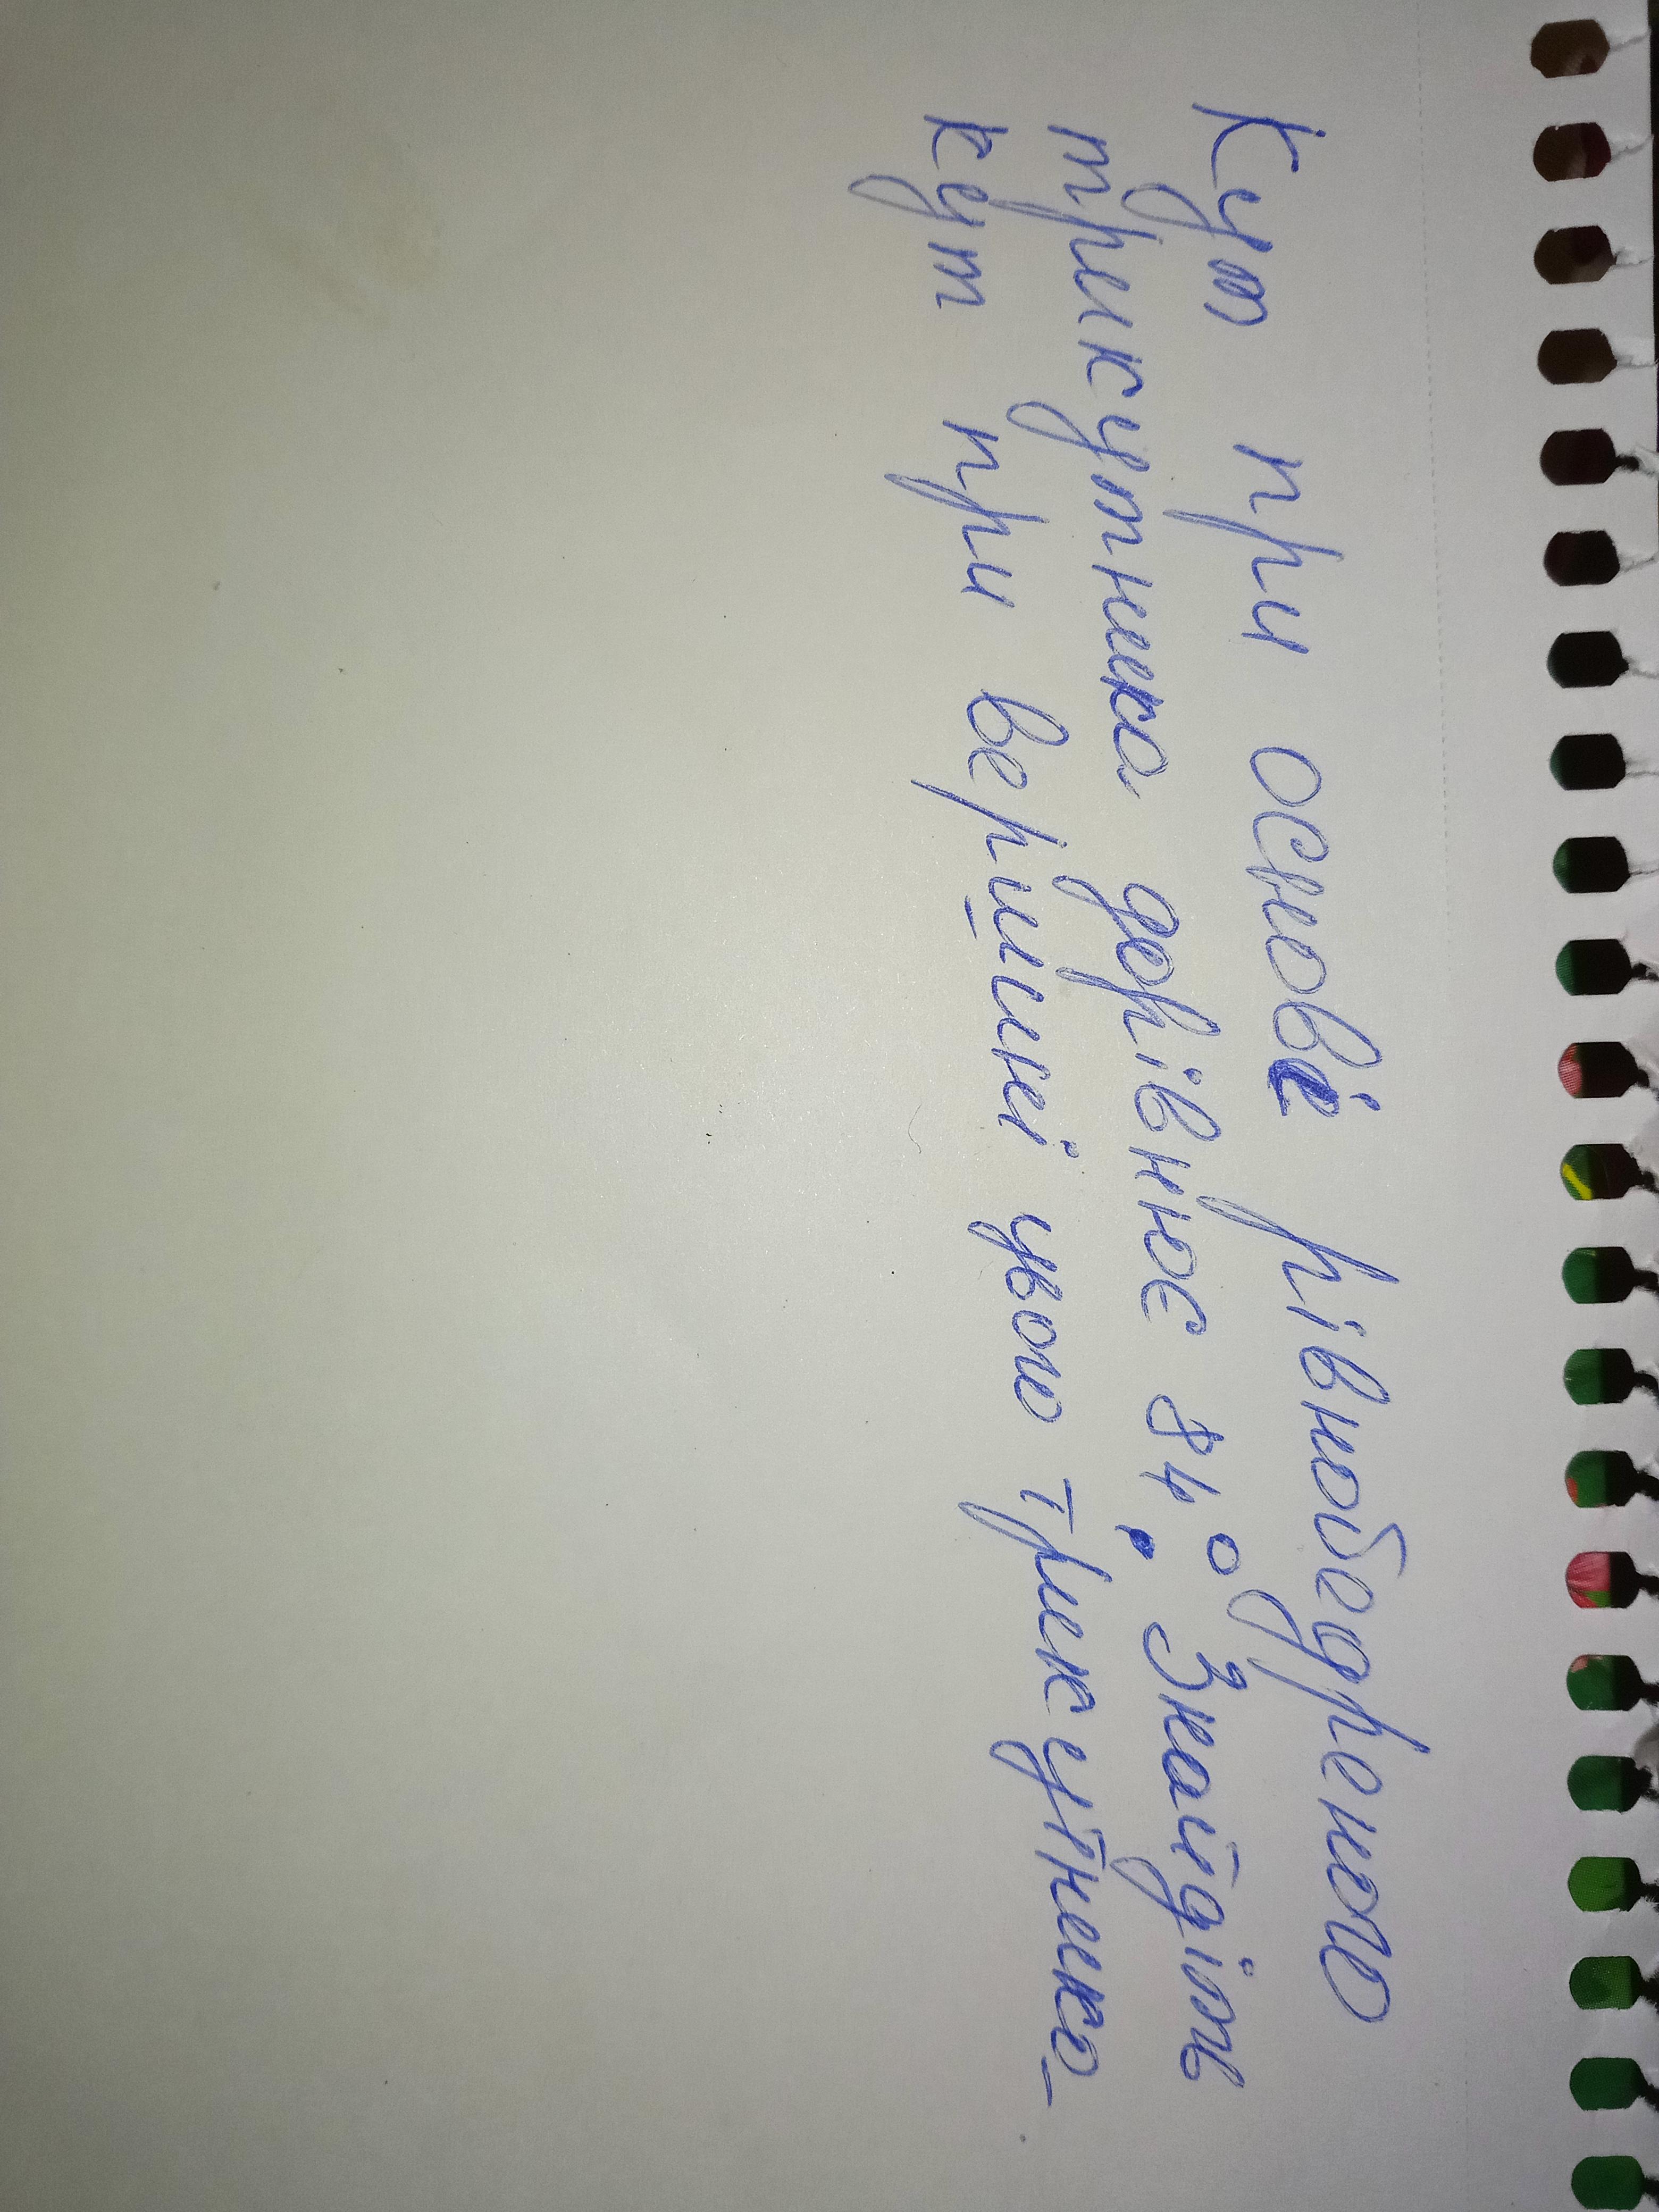 Кут при основі рівнобедреного
трикутника дорівнює 84°. Знайдіть
кут при вершині цього трикутника